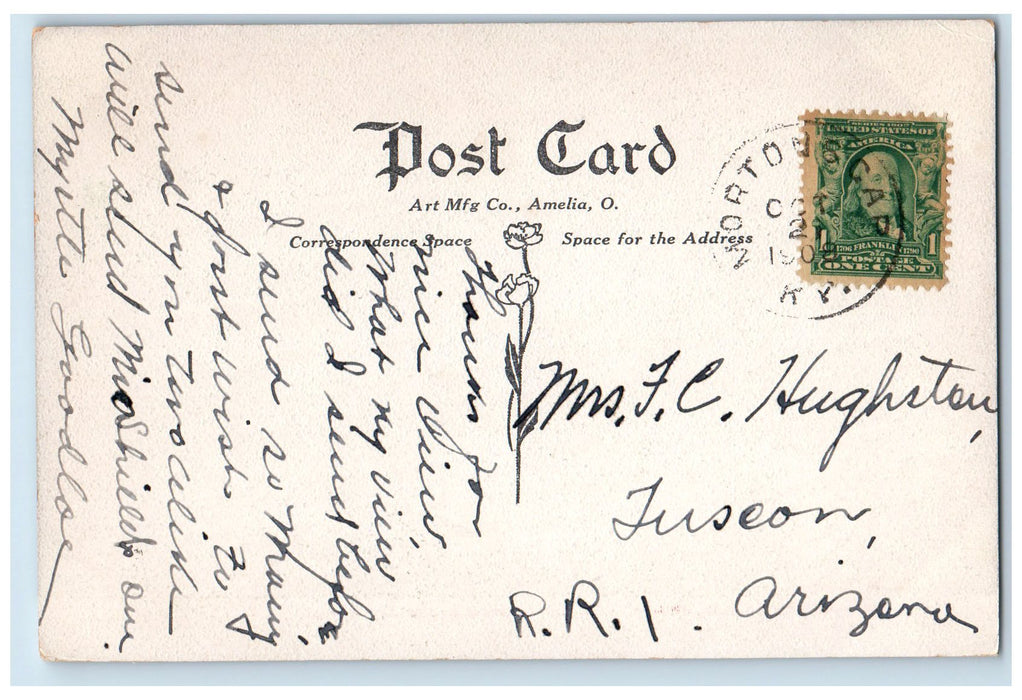 Post Card
Art Mfg Co., Amelia, O.
Correspondence Space
Space for the Address
SERIES 1902
UNITED STATES OF
AMERICA
1706 FRANKLIN 1790
POSTAGE
1 1
ONE CENT
MORTON GAP
OCT
2
KY.
Mrs. F. C. Hughston,
Tuscon,
Arizona
R.R. 1.
Thanks for
nice view
What ny view
did I sent before
I send so many,
& dont wish to
send you two alike
will send Mrs Shields one.
Myrtle Goodloe